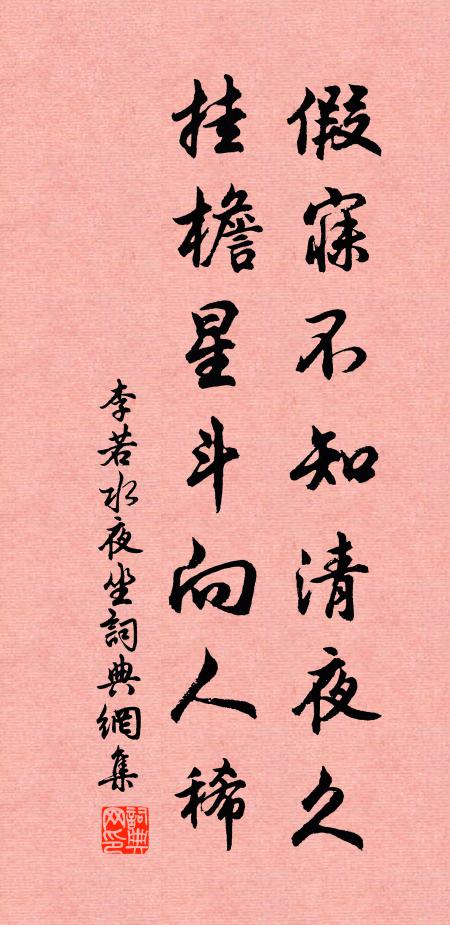 假寐不知清夜久
挂檐星斗向人稀
李若水夜坐詞典網集
詞典網印